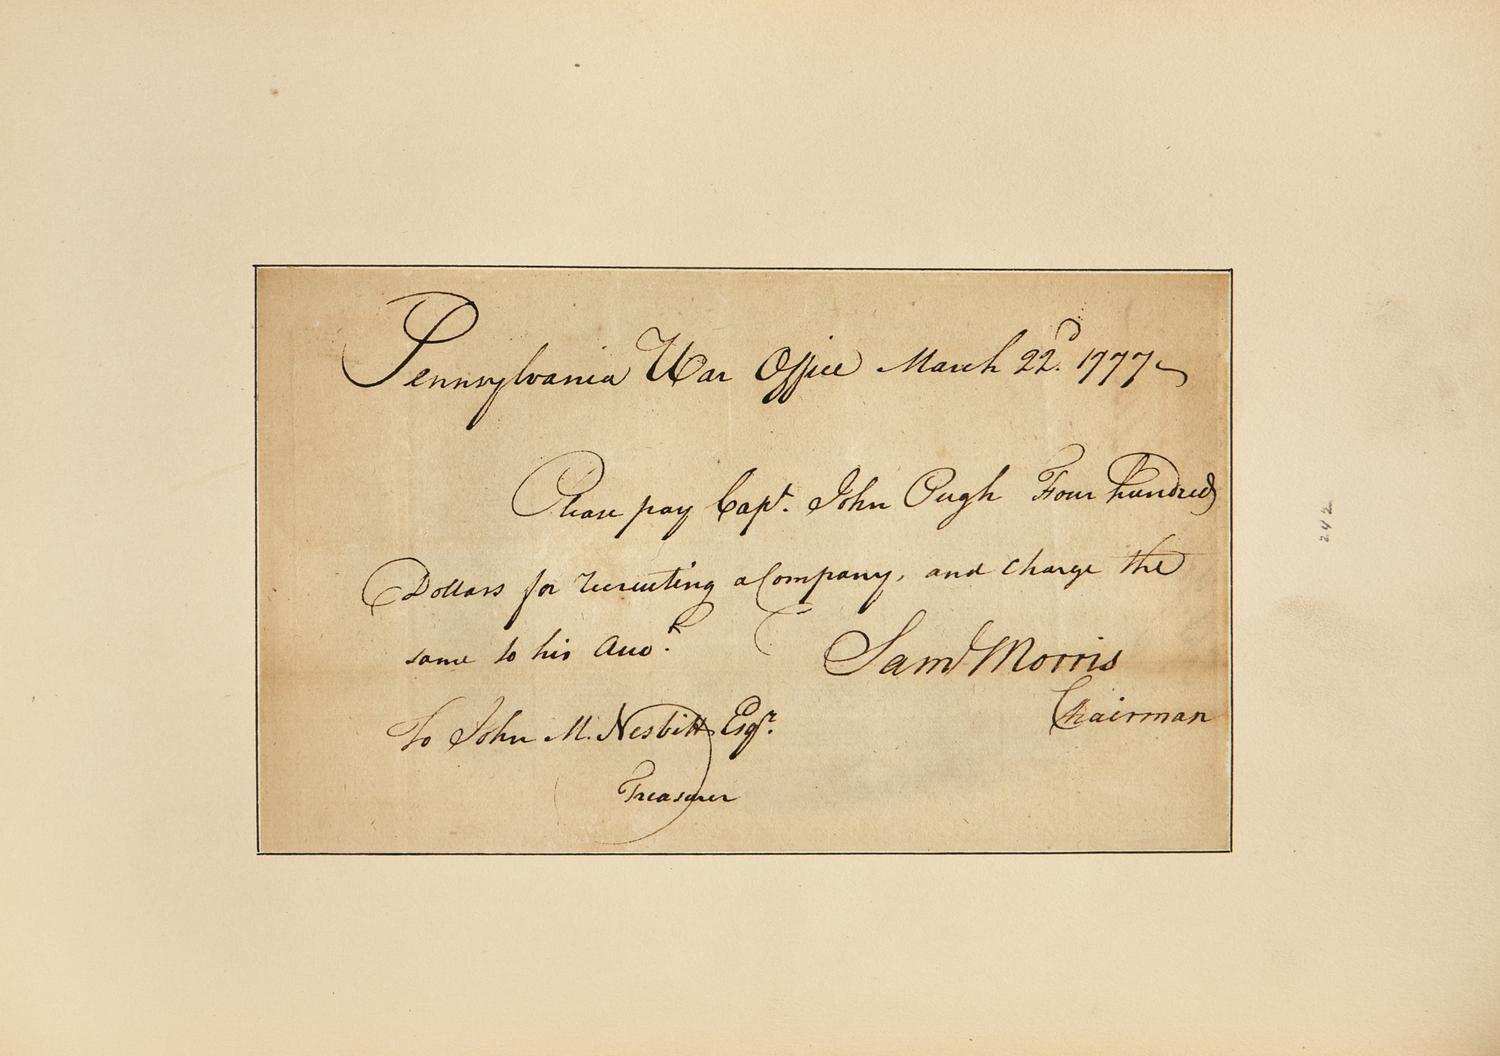 Pennsylvania War Office March 22d. 1777
Please pay Capt. John Pugh Four hundred
Dollars for recruiting a Company, and charge the
same to his Acco.t
Saml Morris
Chairman
To John M. Nesbitt Esqr.
Treasurer
242